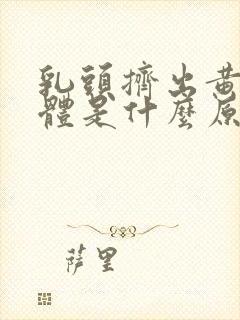 乳頭擠出黃
體是什麼原
萨里